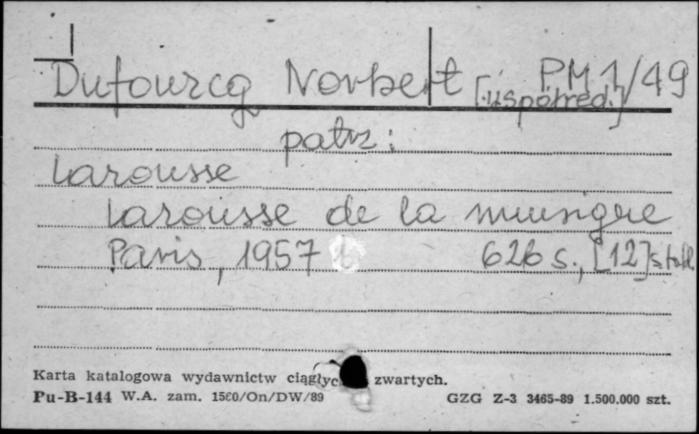 Dufourcq Norbert [współred.] PM 1/49
patrz:
Larousse
Larousse de la musique
Paris, 1957 626 s., [12] s tabl
Karta katalogowa wydawnictw ciągłych zwartych.
Pu-B-144 W.A. zam. 1560/On/DW/89 GZG Z-3 3465-89 1.500.000 szt.